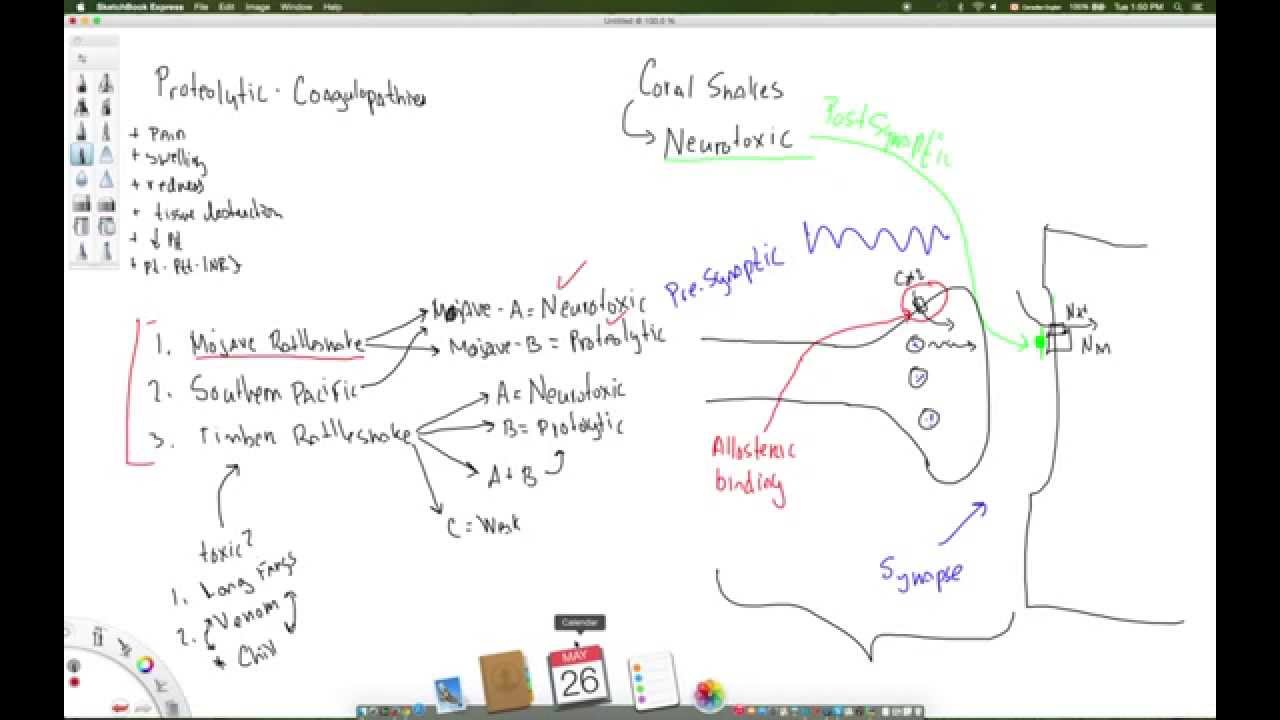 SketchBook Express File Edit Image Window Help
Canadian English 100% Tue 1:50 PM
Untitled @ 100.0 %
Proteolytic - Coagulopathies
+ Pain
+ swelling
+ redness
+ tissue destruction
+ ↓ Plt
+ Pt-Ptt-INR}
Coral Snakes
Neurotoxic
PostSynaptic
Pre-Synaptic
1. Mojave Rattlesnake
Mojave-A = Neurotoxic
Mojave-B = Proteolytic
2. Southern Pacific
3. Timber Rattlesnake
A = Neurotoxic
B = Protolytic
A + B
C = Weak
toxic?
1. Long Fangs
2. Venom
* Chill
Ca+2
Na+
Nm
Allosteric
binding
Synapse
Calendar
MAY
26